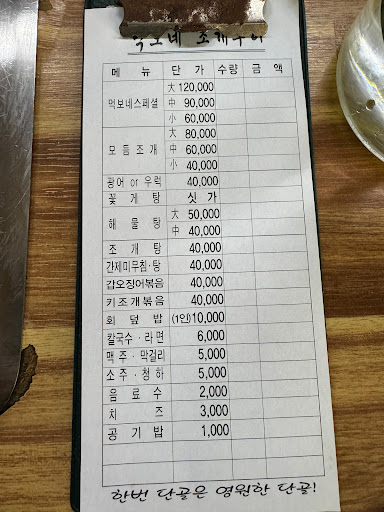 먹보네 조개구이
메뉴 단가 수량 금액
먹보네스페셜 大 120,000
中 90,000
小 60,000
모듬조개 大 80,000
中 60,000
小 40,000
광어 or 우럭 40,000
꽃게탕 싯가
해물탕 大 50,000
中 40,000
조개탕 40,000
간제미무침·탕 40,000
갑오징어볶음 40,000
키조개볶음 40,000
회덮밥 (1인)10,000
칼국수·라면 6,000
맥주·막걸리 5,000
소주·청하 5,000
음료수 2,000
치즈 3,000
공기밥 1,000
한번 단골은 영원한 단골!